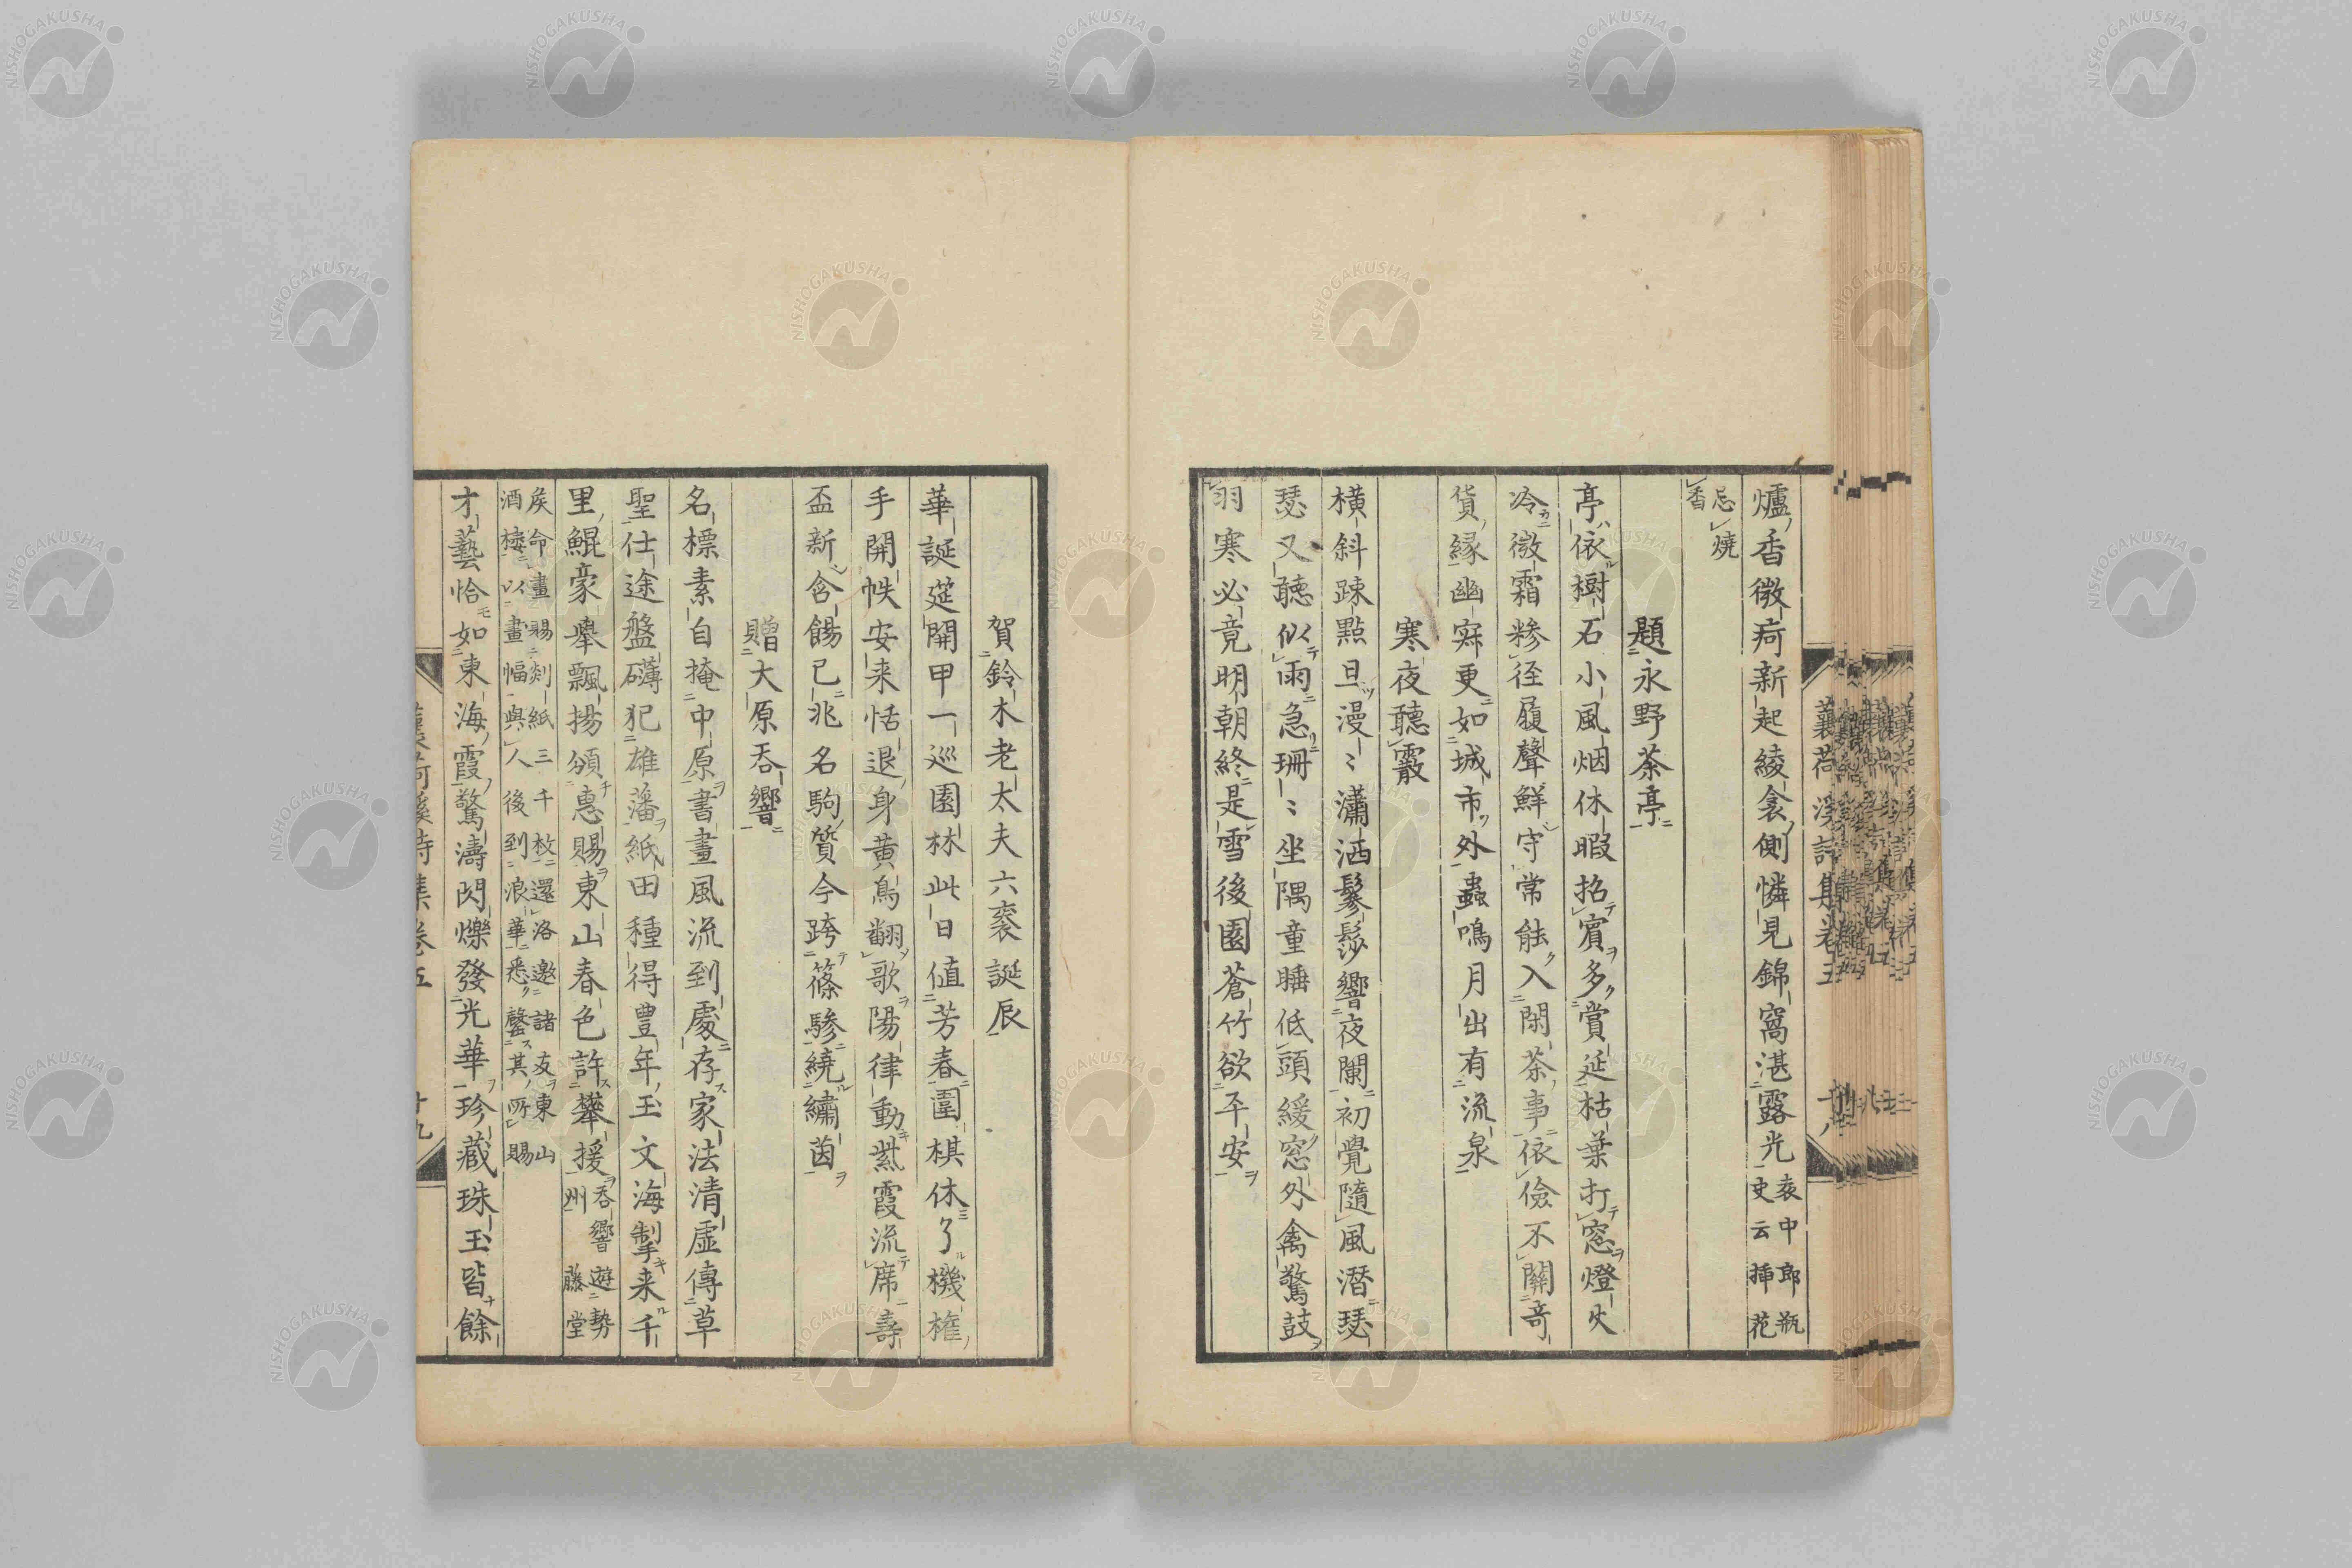 爐香微疴新起綾衾側憐見錦窩湛露光袁中郎瓶
史云挿花
忌燒
香
題永野茶亭
亭依樹石小風烟休暇招賓多賞延枯葉打窓燈火
冷微霜糝径履聲鮮守常能入閑茶事依儉不關奇
貨縁幽寂更如城市外蟲鳴月出有流泉
寒夜聽霰
横斜踈點旦漫〻瀟洒鬖髿響夜闌初覺隨風潛瑟
瑟又聽似雨急珊〻坐隅童睡低頭緩窓外禽驚鼓
羽寒必竟明朝終是雪後園蒼竹欲平安
賀鈴木老太夫六袠誕辰
華誕莚開甲一巡園林此日値芳春圍棋休了機権
手開帙安来恬退身黄鳥翻歌陽律動紫霞流席壽
盃新含餳已兆名駒質今跨篠驂繞繡茵
贈大原呑響
名標素自掩中原書畫風流到處存家法清虚傳草
聖仕途盤礴犯雄藩紙田種得豊年玉文海掣来千
里鯤豪舉飄揚頒惠賜東山春色許攀援呑響遊勢
州藤堂
矦命畫賜剡紙三千枚還洛邀諸友東山
酒楼以畫幅與人後到浪華悉罄其所賜
才藝恰如東海霞驚濤閃爍發光華珍藏珠玉皆餘
蘘荷溪詩集卷五
十九